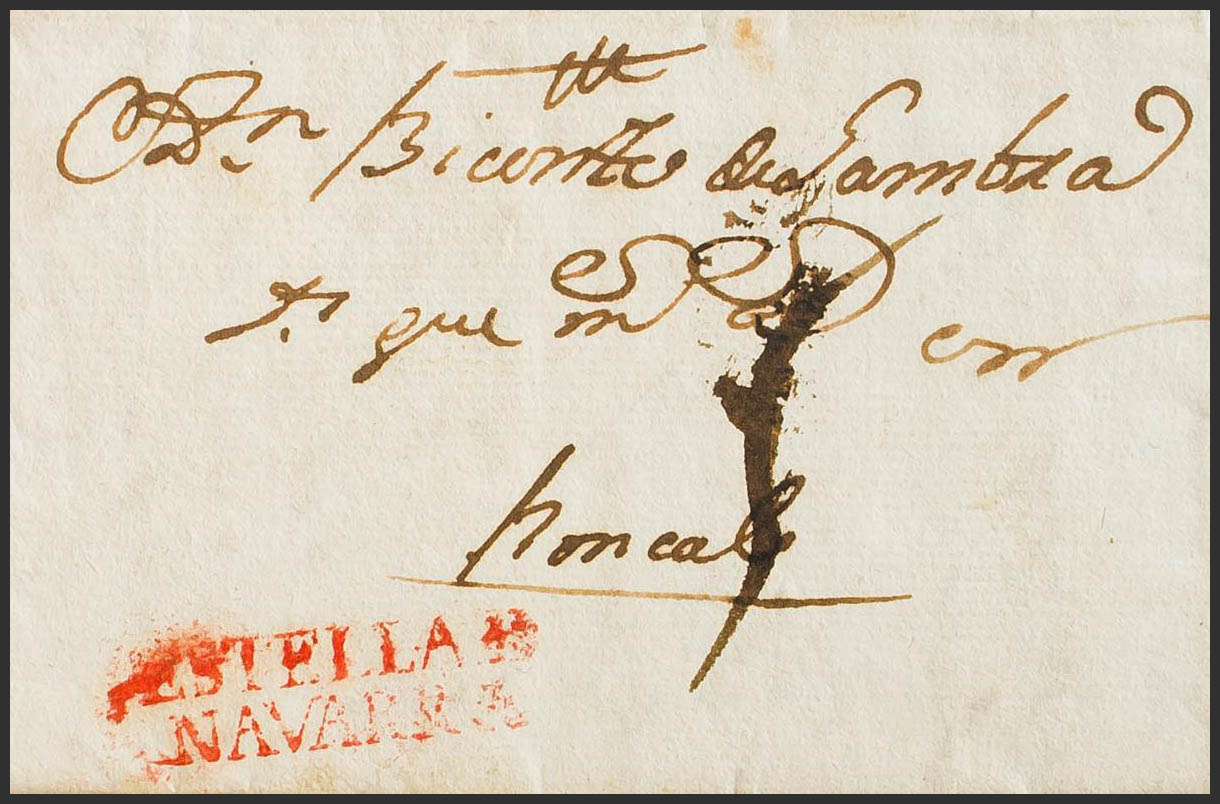 Dn Bicente de Gambra
que en
Roncal
ESTELLA
NAVARRA